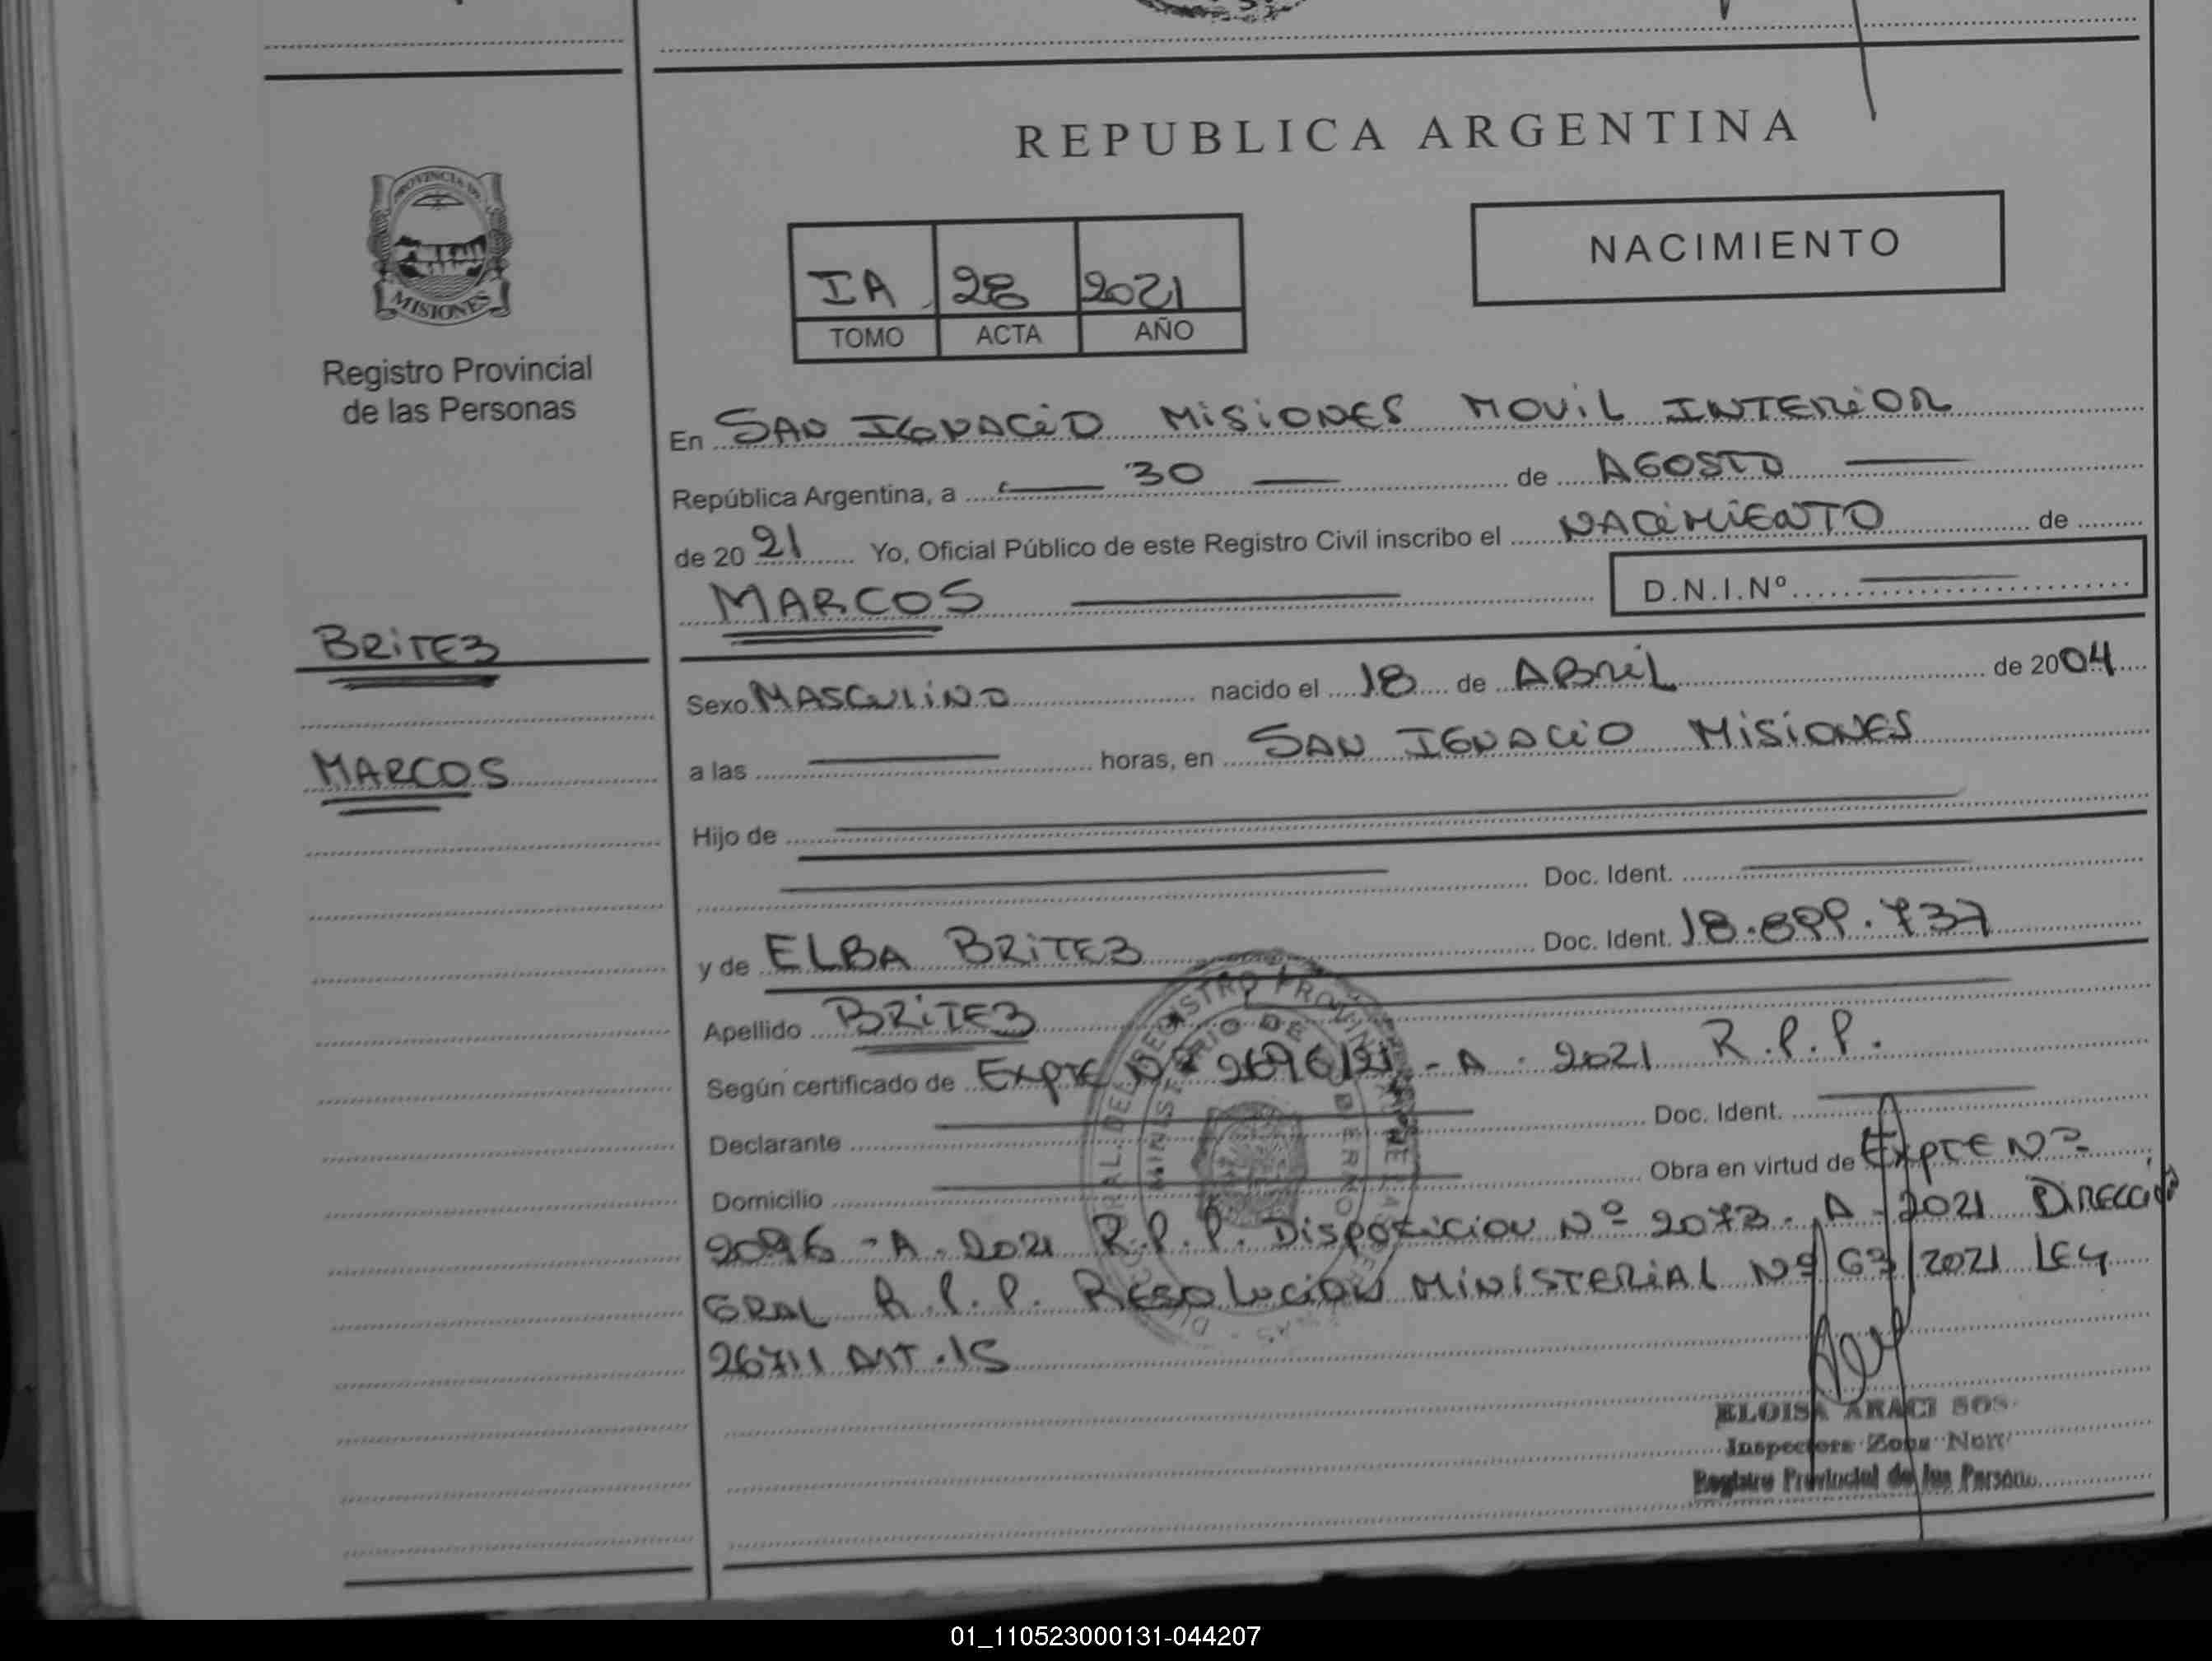 REPUBLICA ARGENTINA
PROVINCIA DE
MISIONES
Registro Provincial
de las Personas
NACIMIENTO
IA 28 2021
TOMO ACTA AÑO
En SAN IGNACIO MISIONES MOVIL INTERIOR
República Argentina, a 30 de AGOSTO
de 20 21 Yo, Oficial Público de este Registro Civil inscribo el NACIMIENTO de
MARCOS D.N.I.Nº
BRITEZ
MARCOS
Sexo MASCULINO nacido el 18 de ABRIL de 2004
a las horas, en SAN IGNACIO MISIONES
Hijo de
Doc. Ident.
y de ELBA BRITEZ Doc. Ident. 18.899.737
Apellido BRITEZ
Según certificado de EXPTE Nº 2696/21 - A - 2021 R.P.P.
Declarante Doc. Ident.
Domicilio Obra en virtud de EXPTE Nº
2096 - A - 2021 R.P.P. DISPOSICION Nº 2073 - A - 2021 DIRECCION
GRAL R.P.P. RESOLUCION MINISTERIAL Nº 63/2021 LEY
26711 ART. 15
ELOISA ARACI SOS
Inspectora Zona Nort
Registro Provincial de las Persona
01_110523000131-044207